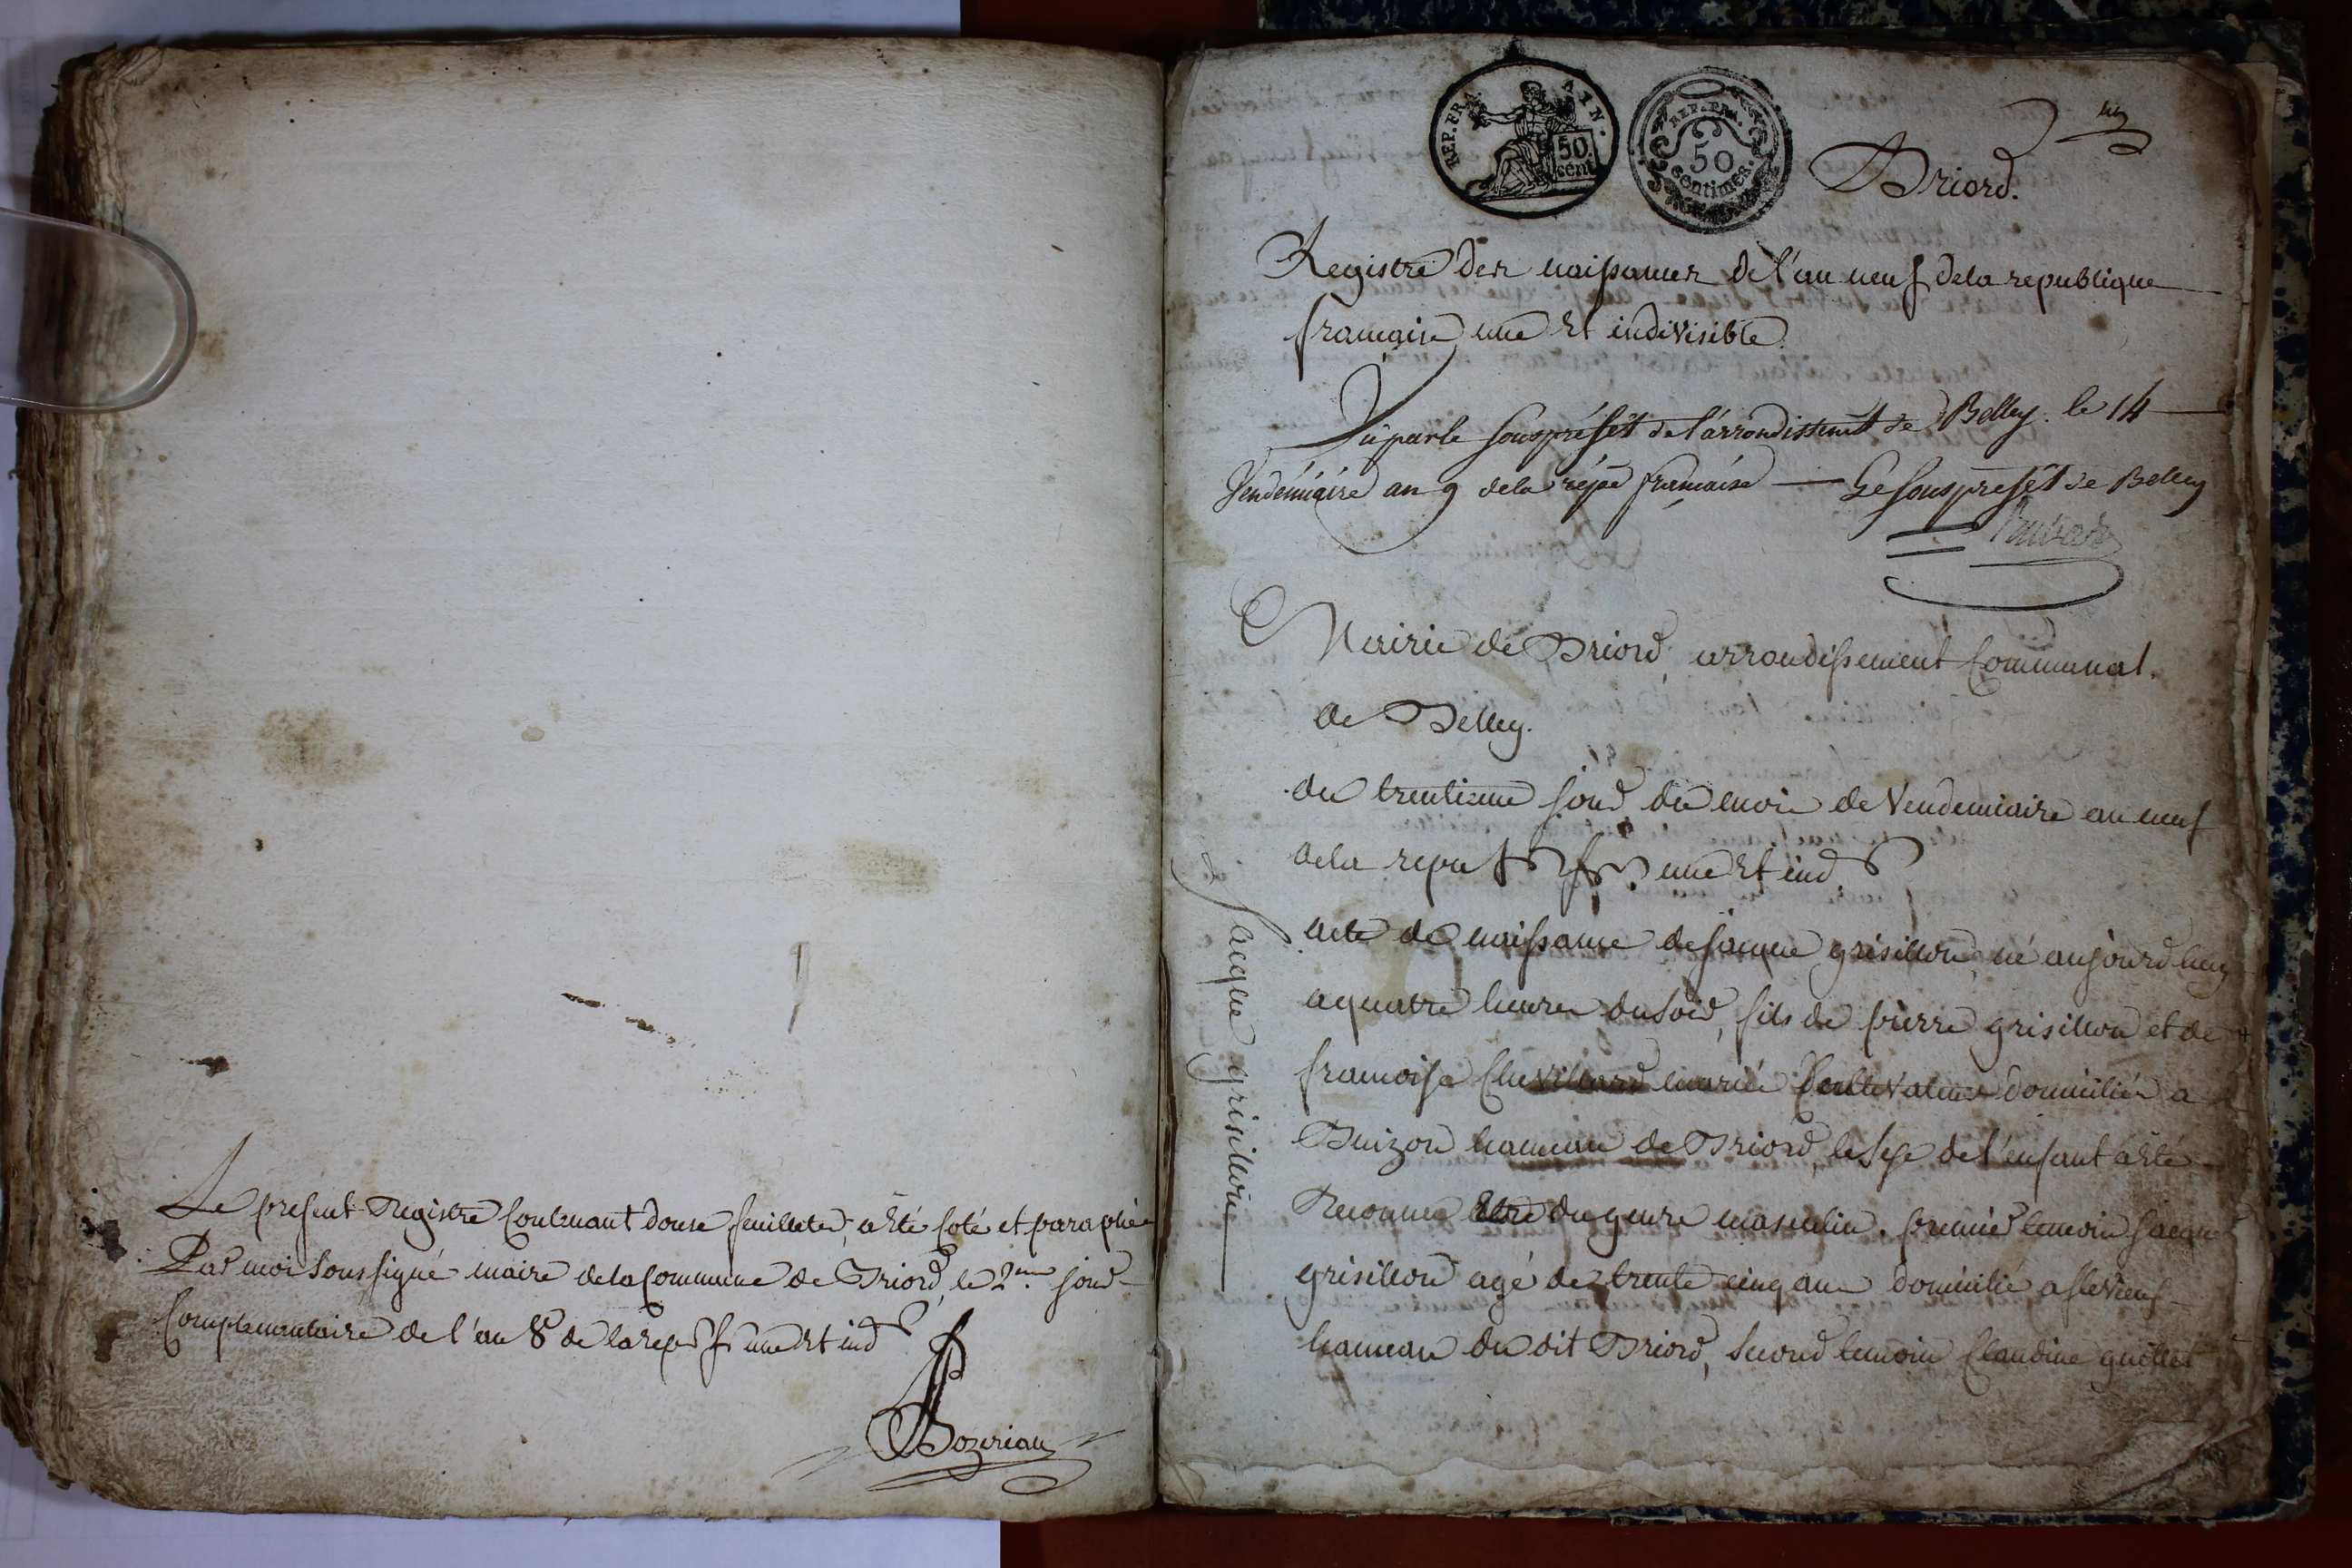 Le present Registre Contenant douse feuilletes, a été Coté et paraphée
Par moi Soussigné maire dela Commune de Briord, le 2.me jour
Complementaire de l'an 8e de la rep fr une et ind
Bozerian
REP. FRA. AIN.
50 cent
REP. FRA.
50
centimes.
Briord.
Registre des naissances de l'an neuf dela republique
francaise une et indivisible.
Vu par le souspréfét de l'arrondissemt de Belley. le 14
Vendémiaire an 9 dela répu francaise — Le souspréfét de Belley
Mairie de Briord, arrondissement Communal.
de Belley.
du trentieme jour du mois de Vendemiaire an neuf
dela repu fr une et ind
acte de naissance de jacque grisillon, né aujourd huy
a quatre heures du soir, fils de pierre grisillon et de
francoise mariée domiciliés a
Buizon hameau de Briord, le sexe de l'enfant a été
Reconnu être du genre masculin. premier temoin jacque
grisillon agé de trente cinq ans domicilié a
hameau du dit Briord, second temoin Claudine guillet
Jacque grisillon